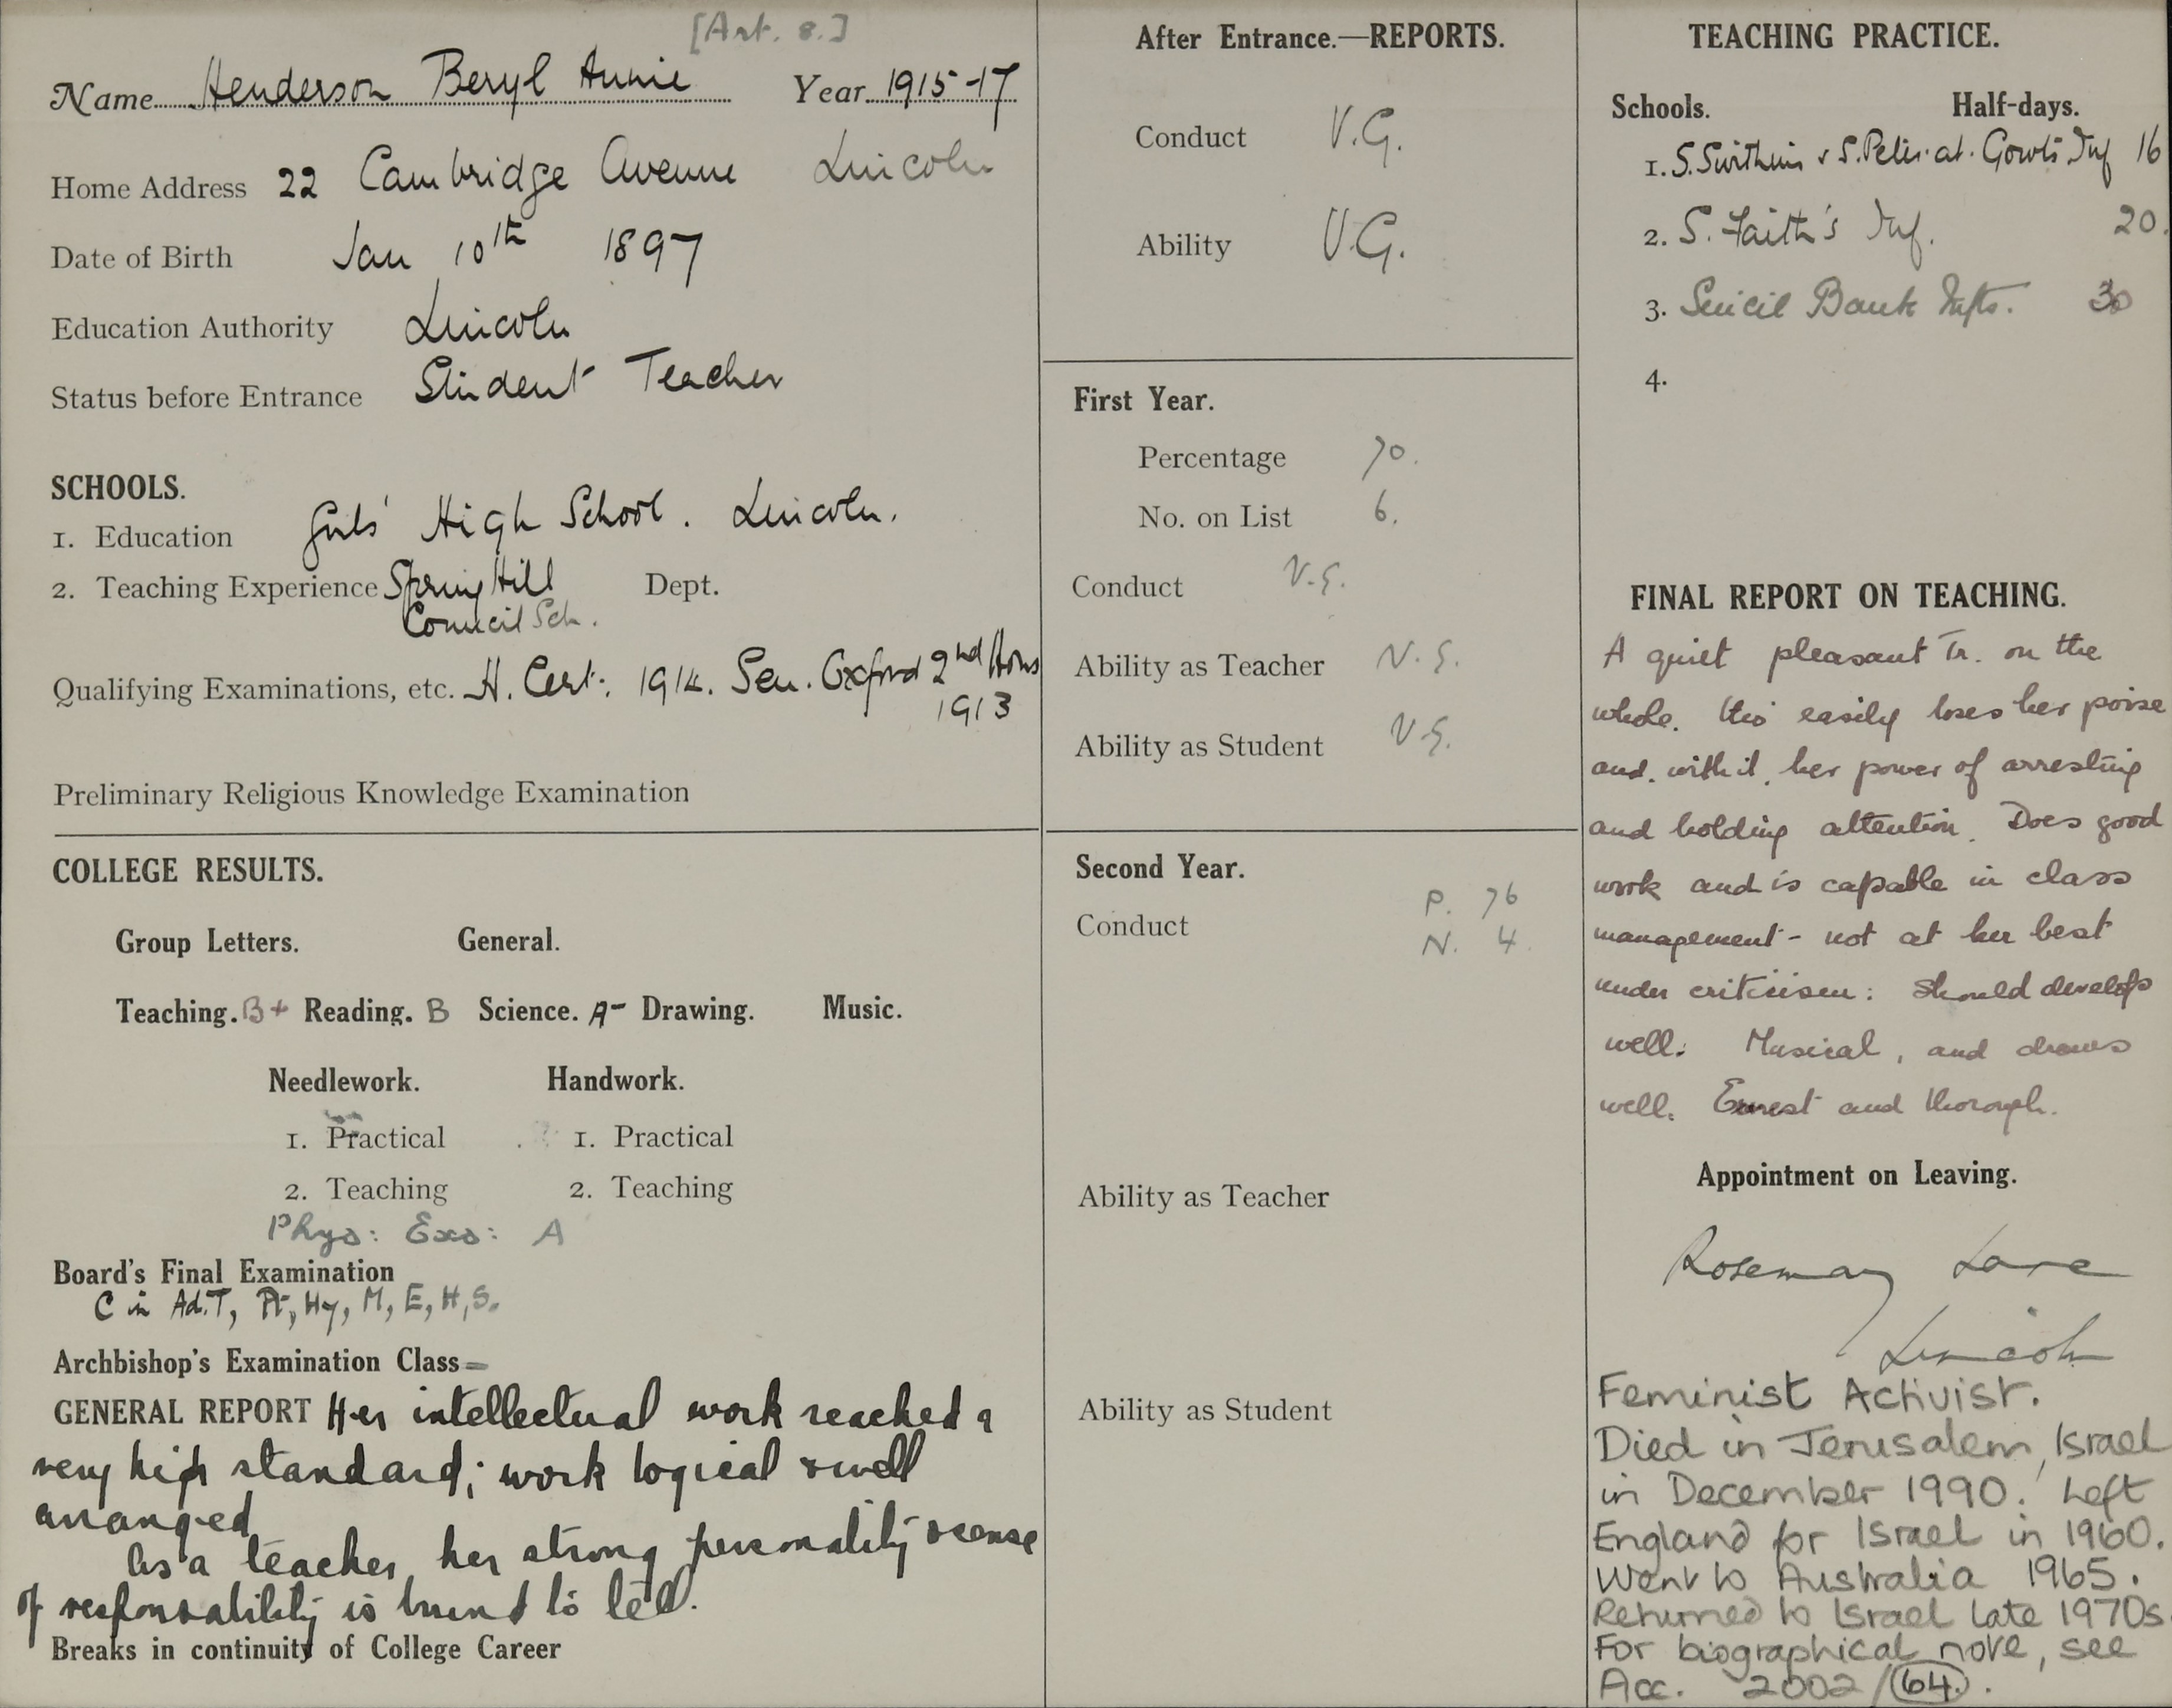 [Art. 8.]
Name Henderson Beryl Annie Year 1915-17
Home Address 22 Cambridge Avenue Lincoln
Date of Birth Jan 10th 1897
Education Authority Lincoln
Status before Entrance Student Teacher
SCHOOLS.
1. Education Girls' High School. Lincoln.
2. Teaching Experience Spring Hill Dept.
Council Sch.
Qualifying Examinations, etc. H. Cert: 1914. Sen. Oxford 2nd Hons
1913
Preliminary Religious Knowledge Examination
COLLEGE RESULTS.
Group Letters. General.
Teaching. B+ Reading. B Science. A- Drawing. Music.
Needlework. Handwork.
1. Practical 1. Practical
2. Teaching 2. Teaching
Phys: Exs: A
Board's Final Examination
C in Ad.T, Pt, Hy, M, E, H, S.
Archbishop's Examination Class —
GENERAL REPORT Her intellectual work reached a
very high standard; work logical & well
arranged
As a teacher, her strong personality & sense
of responsability is bound to tell.
Breaks in continuity of College Career
After Entrance.—REPORTS.
Conduct V.G.
Ability V.G.
First Year.
Percentage 70.
No. on List 6.
Conduct V.G.
Ability as Teacher V.G.
Ability as Student V.G.
Second Year.
P. 76
Conduct
N. 4.
Ability as Teacher
Ability as Student
TEACHING PRACTICE.
Schools. Half-days.
1. S. Swithin's & S. Peter-at-Gowts Inf 16
2. S. Faith's Inf. 20.
3. Sincil Bank Infts. 30
4.
FINAL REPORT ON TEACHING.
A quiet pleasant Tr. on the
whole. tho' easily loses her poise
and, with it, her power of arresting
and holding attention. Does good
work and is capable in class
management - not at her best
under criticism: Should develop
well. Musical, and draws
well. Earnest and thorough.
Appointment on Leaving.
Rosemary Lane
Lincoln
Feminist Activist.
Died in Jerusalem, Israel
in December 1990. Left
England for Israel in 1960.
Went to Australia 1965.
Returned to Israel late 1970s.
For biographical note, see
Acc. 2002/64.